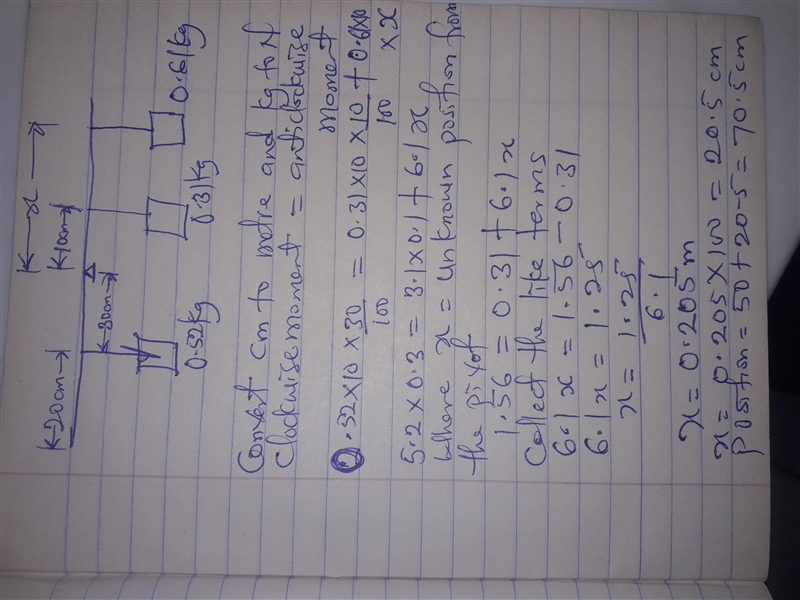 K-x →
K-20cm→ K-30cm→ K10cm→
0.52kg 0.31kg 0.61kg
Convert cm to metre and kg to N
Clockwise moment = anticlockwise
moment
0.52x10 x 30/100 = 0.31x10 x 10/100 + 0.61x10
x x
5.2 x 0.3 = 3.1x0.1 + 6.1x
where x = unknown position from
the pivot
1.56 = 0.31 + 6.1x
Collect the like terms
6.1x = 1.56 - 0.31
6.1x = 1.25
x = 1.25/6.1
x = 0.205m
x = 0.205 x 100 = 20.5 cm
position = 50 + 20.5 = 70.5 cm